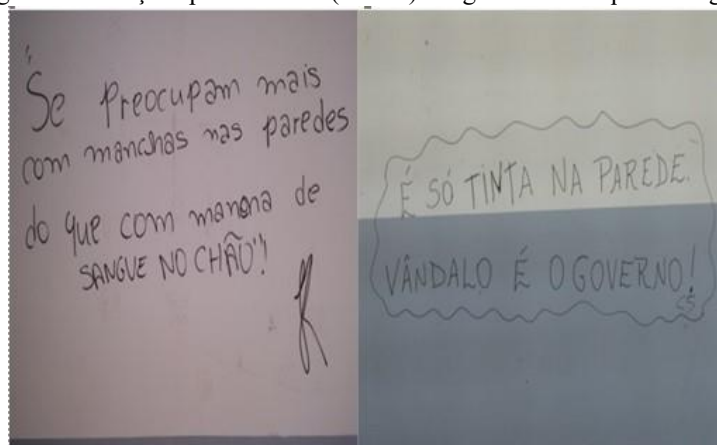 Se preocupam mais
com manchas nas paredes
do que com manana de
SANGUE NO CHÃO"!
É SÓ TINTA NA PAREDE.
VÂNDALO É O GOVERNO!